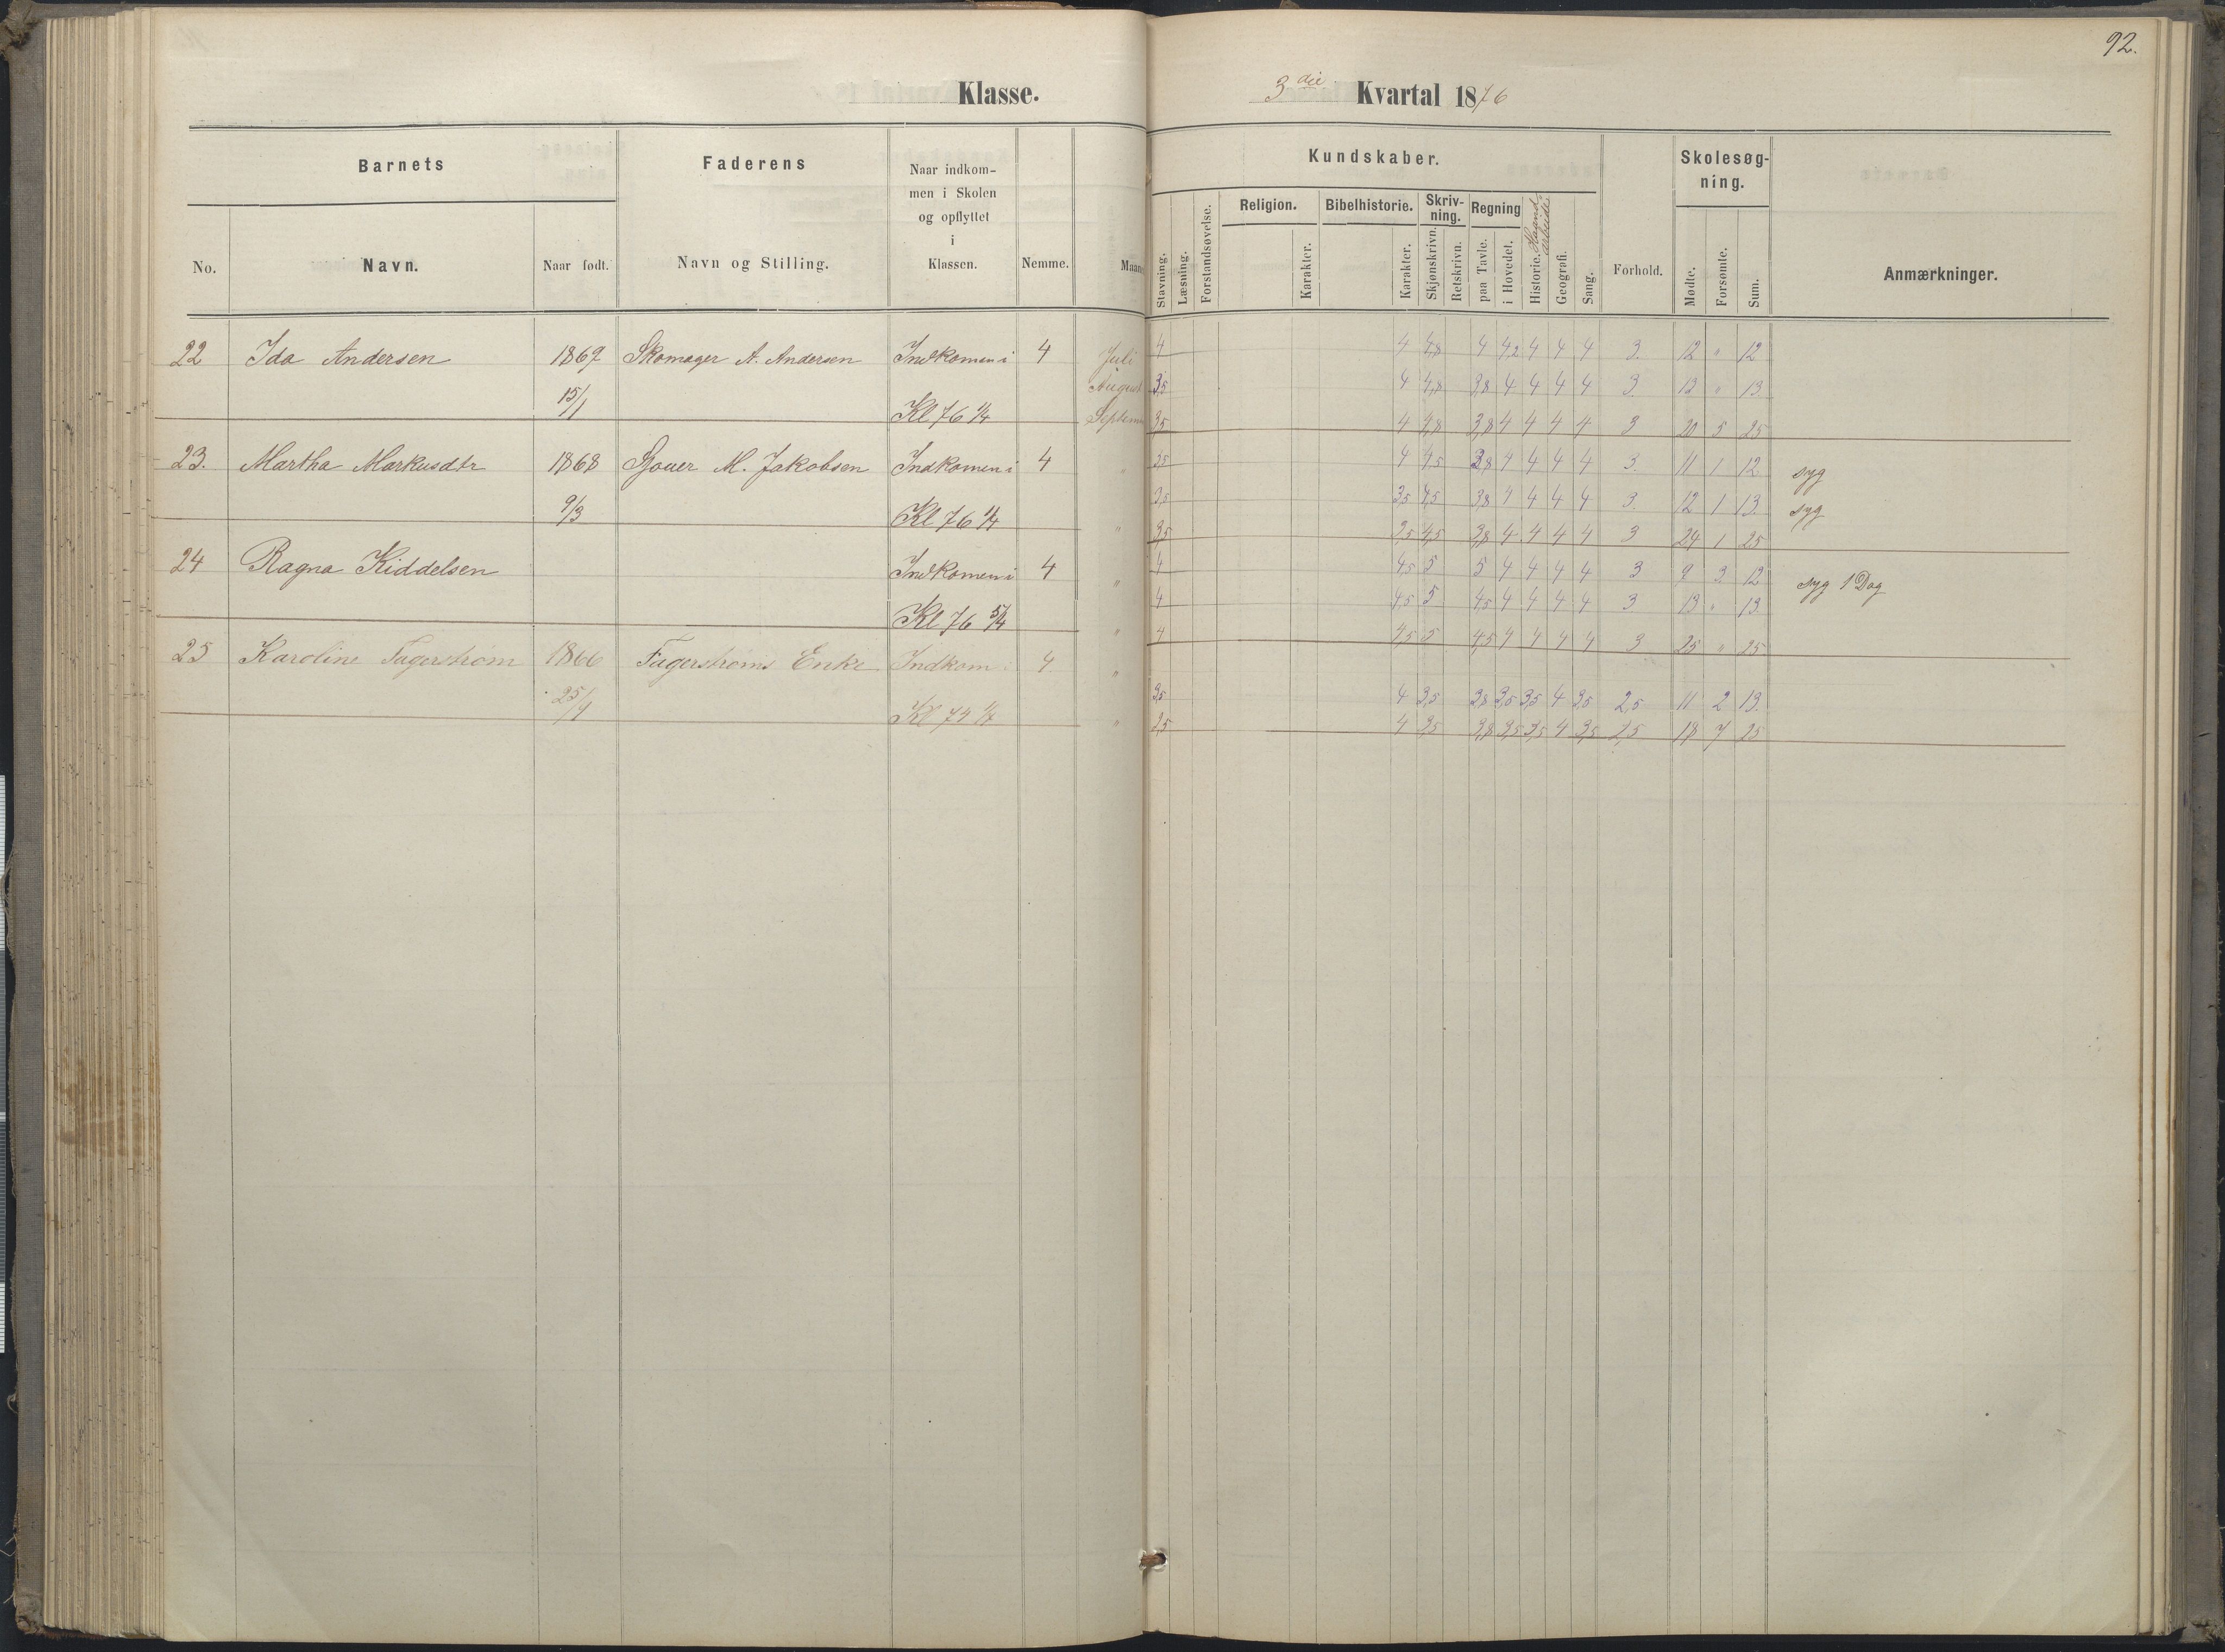 92.
Klasse.
3die Kvartal 1876
Barnets
Faderens
Naar indkom-
men i Skolen
og opflyttet
i
Klassen.
No.
Navn.
Naar født.
Navn og Stilling.
Nemme.
Maane
Kundskaber.
Skolesøg-
ning.
Stavning.
Læsning.
Forstandsøvelse.
Religion.
Karakter.
Bibelhistorie.
Karakter.
Skriv-
ning.
Skjønskrivn.
Retskrivn.
Regning
paa Tavle.
i Hovedet.
Historie.
Haand
arbeide
Geografi.
Sang.
Forhold.
Mødte.
Forsømte.
Sum.
Anmærkninger.
22 Ida Andersen 1869 Skomager A. Andersen Indkommen i 4 Juli 4 4 4,8 4 4,2 4 4 4 3. 12 " 12
15/1 August 3,5 4 4,8 3,8 4 4 4 4 3. 13 " 13
Kl 76 1/4 Septem 3,5 4 4,8 3,8 4 4 4 4 3 20 5 25
23. Martha Markusdtr 1868 M. Jakobsen Indkommen i 4 " 3,5 4 4,5 3,8 4 4 4 4 3. 11 1 12 syg
9/3 3,5 3,5 4,5 3,8 4 4 4 4 3. 12 1 13 syg
Kl 76 1/4 " 3,5 3,5 4,5 3,8 4 4 4 4 3 24 1 25
24 Ragna Kiddelsen Indkommen i 4 " 4 4,5 5 5 4 4 4 4 3 9 3 12 syg 1 Dag
4 4,5 5 4,5 4 4 4 4 3 13 " 13
Kl 76 " 4 4,5 5 4,5 4 4 4 4 3 25 " 25
25 Karoline Fagerstrøm 1866 Fagerstrøms Enke Indkom i 4 "
25/4 3,5 4 3,5 3,8 3,5 3,5 4 3,5 2,5 11 2 13
Kl 74 1/4 " 3,5 4 3,5 3,8 3,5 3,5 4 3,5 2,5 18 7 25